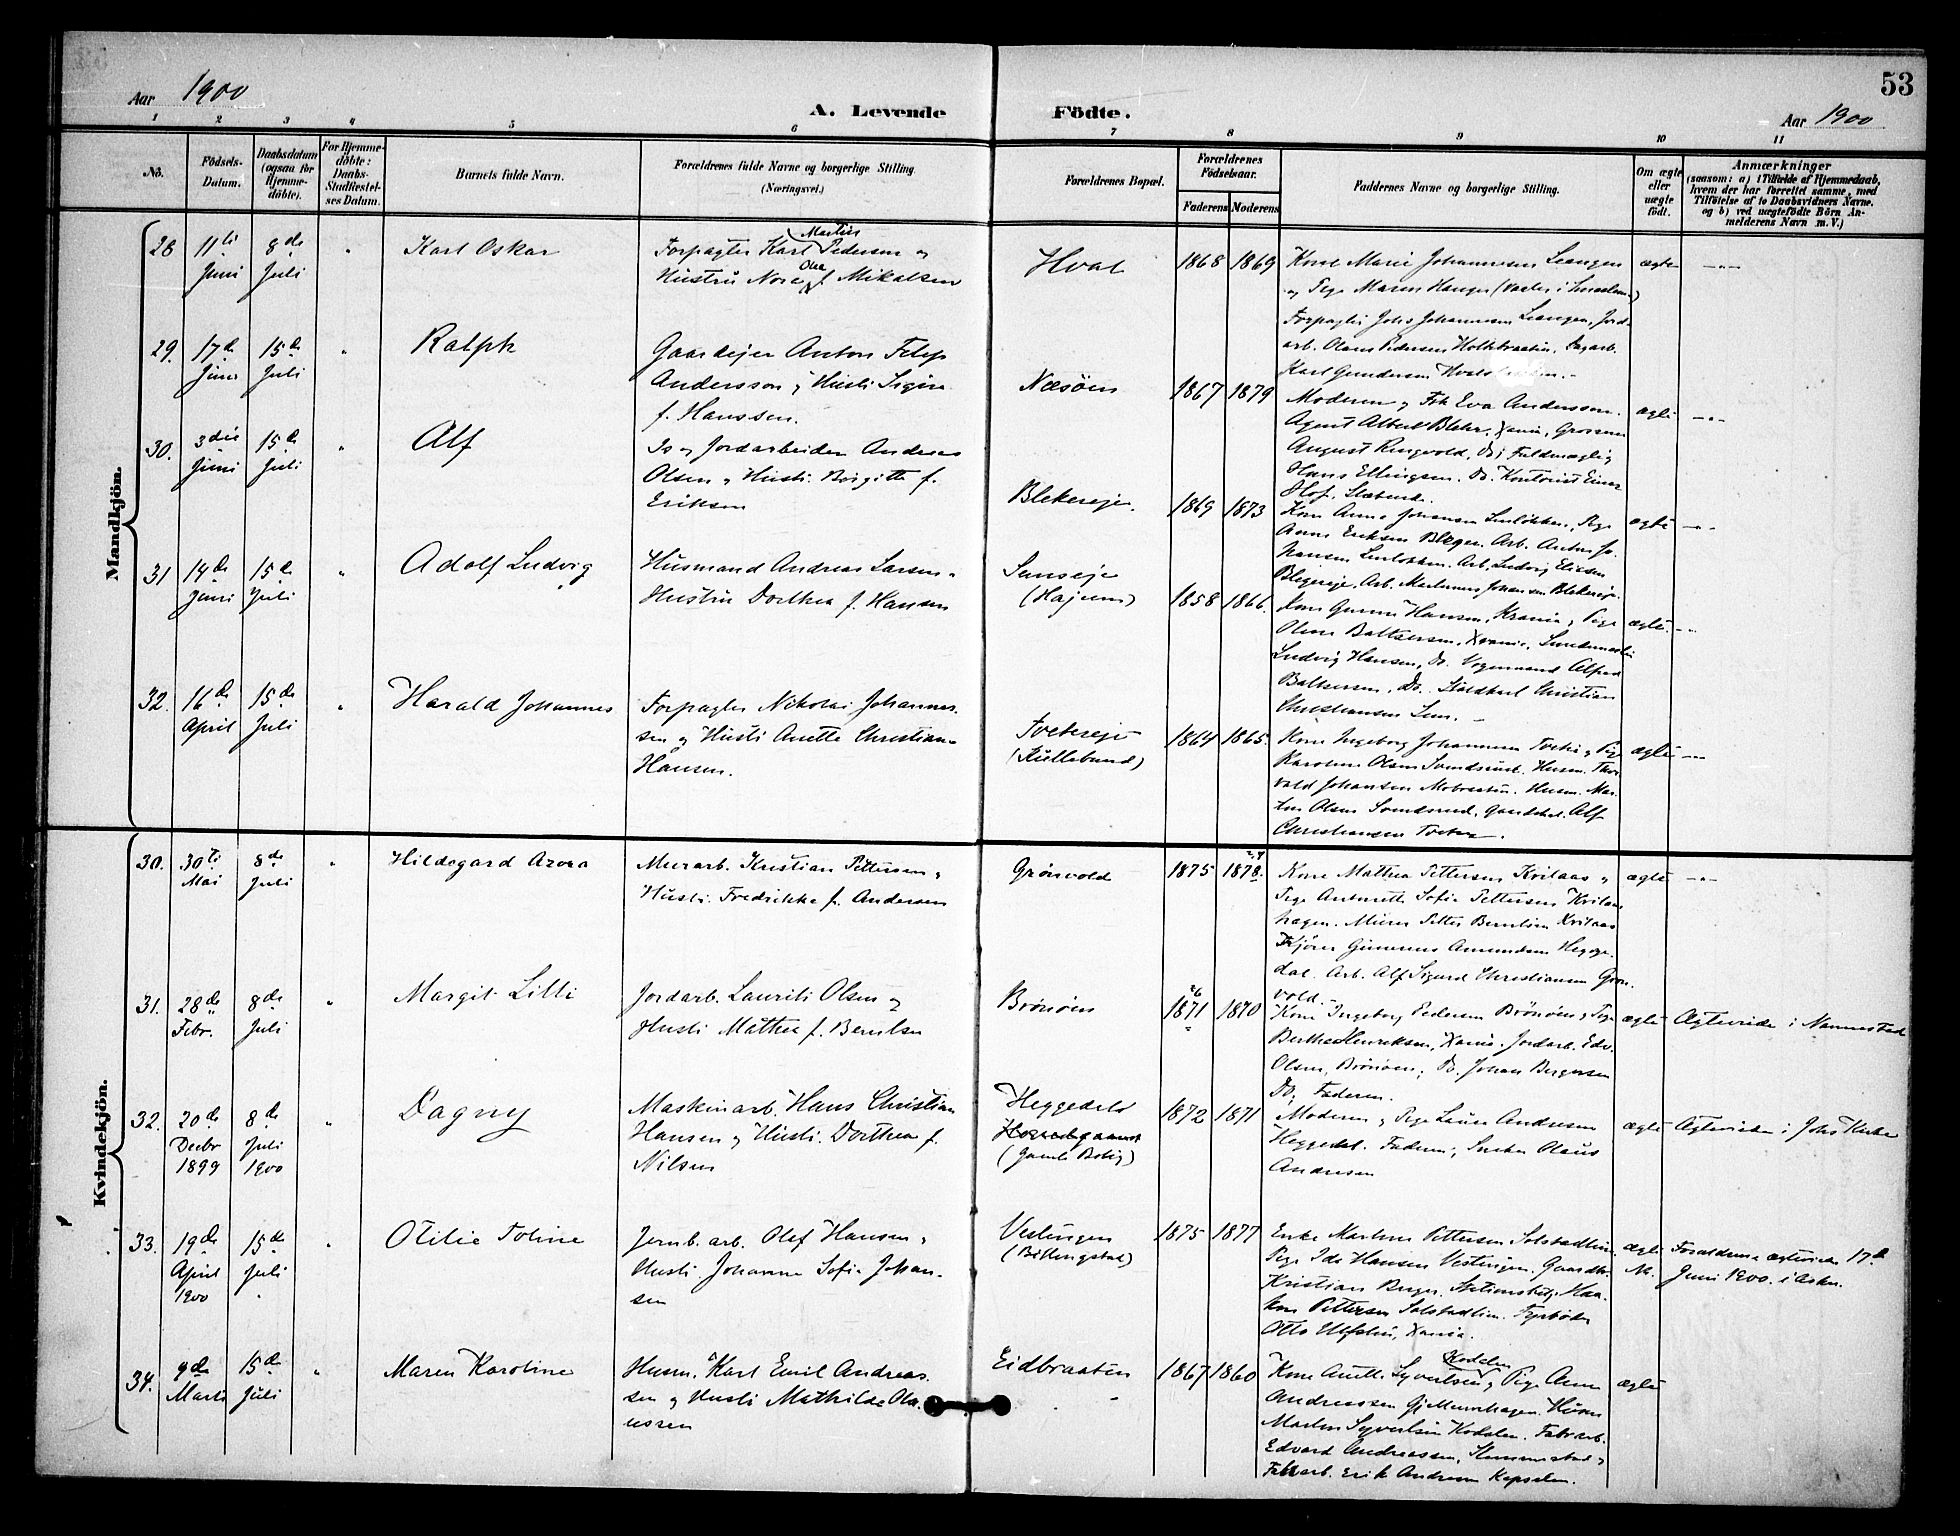 53
Aar 1900
A. Levende Födte.
Aar 1900
1 2 3 4 5 6 7 8 9 10 11
No.
Födsels-Datum.
Daabsdatum (ogsaa for Hjemme-döbte).
For Hjemme-döbte: Daabs-Stadfæstel-ses Datum.
Barnets fulde Navn.
Forældrenes fulde Navne og borgerlige Stilling.
(Næringsvei.)
Forældrenes Bopæl.
Forældrenes Födselsaar.
Faderens Moderens
Faddernes Navne og borgerlige Stilling.
Om ægte eller uægte födt.
Anmærkninger
(saasom: a) i Tilfælde af Hjemmedaab,
hvem der har forrettet samme, med
Tilföielse af to Daabsvidners Navne.
og b) ved uægtefödte Börn An-
melderens Navn m. V.)
Mandkjön.
28 11te Juni 8de Juli " Karl Oskar
Forpagter Karl Martin Pedersen og
Hustru Nora Olea f. Mikalsen
Hval 1868 1869
Kone Marie Johannesen Leangen
og Pige Maren Hauger
Forpagter Johs Johannesen Leangen, Jord-
arb. Olaus Pedersen Holtebraaten, Dagarb.
Karl Gundersen
ægte —"—
29. 17de Juni 15de Juli " Ralph
Gaardejer Anton Filip
Andersson og Hustr. Signe
f. Hanssen.
Næsöen 1867 1879
Moderen og Frk Eva Andersson.
Agent Albert Blehr, Xania, Grosserer
August Ringvold, Do; Fuldmægtig
Hans Ellingsen, Do. Kontorist Einar
Hof, Slæbende.
ægte —"—
30. 3die Juni 15de Juli " Alf
Is og Jordarbeider Anders
Olsen og Hustr. Birgitte f.
Eriksen
Blekereje. 1869 1873
Kone Anna Johansen Semlökken, Pige
Anna Eriksen Bleger. Arb. Anton Jo-
hansen Semlökken. Arb. Ludvig Eliesen
Blegereje, Arb. Martinius Johansen Blekereje.
ægte —"—
31 14de Juni 15de Juli " Adolf Ludvig
Husmand Andreas Larsen og
Hustru Dorthea f. Hansen
Semseje
(Hajum) 1858 1866.
Kone Gunni Hansen, Krania og Pige
Olava Baltzersen, Xrania, Smedmester
Ludvig Hansen, Do. Vognmand Alfred
Baltzersen, Do. Staldkarl Christian
Christiansen Sem. —
ægte. —"—
32. 16de April 15de Juli " Harald Johannes
Forpagter Nikolai Johannes-
sen og Hustr Anette Christian-
Hansen.
Tvetereje
(Kullebund) 1864 1865.
Kone Ingeborg Johannesen Tveter og Pige
Karoline Olsen Svendsrud. Husm. Thor-
vald Johansen Mobraaten. Husm. Mar-
tin Olsen Svendsrud, Gaardbr. Alf
Christiansen Tveter.
ægte —"—
Kvindekjön.
30. 30te Mai 8de Juli " Hildegard Azora
Murarb. Kristian Pettersen og
Hustr. Fredrikke f. Andersen
Grönvold 1875 1878.
Kone Mathea Pettersen Kvilaas og
Pige Antonette Sofie Pettersen Kvilaas-
hagen. Murer Petter Berntsen Kvilaas
Kjörer Gunerius Amundsen Hegge-
dal. Arb. Alf Sigurd Christiansen Grön-
vold.—
ægte —"—
31. 28de Febr. 8de Juli " Margit Lilli
Jordarb. Laurits Olsen og
Hustr Mathea f. Berntsen
Brönöen 1871 1870
Kone Ingeborg Pedersen Brönöen og Pige
Berthe Henriksen, Xania. Jordarb. Edv.
Olsen, Brönöen; Do. Johan Bergersen
Do, Faderen.
ægte Ægteviede i Nannestad
32. 20de Decbr 1899 8de Juli 1900 " Dagny
Maskinarb. Hans Christian
Hansen og Hustr. Dorthea f.
Nilsen
Heggedels
(Gamle Bolig) 1872 1871
Moderen og Pige Laura Andresen
Heggedal. Faderen; Snedker Olaus
Andresen
ægte Ægteviede i Johs Kirke
33. 19de April 1900 15de Juli " Otilie Toline
Jernb. arb. Olef Hansen og
Hustr. Johanne Sofie Johan-
sen
Vestingen
(Billingstad) 1875 1877
Enke Marthine Pettersen Solstadlien
Pige Ida Hansen Vestingen. Gaardbr.
Kristian Berger. Stationsbetj. Haa-
kon Pettersen Solstadlien. Fyrböder
Otto Ulfsten, Xania.
ægte Forældrene ægteviede 17de
Juni 1900. i Asker.
34. 9de Marts 15de Juli " Maren Karoline
Husm. Karl Emil Andreas-
sen og Hustr Mathilde Ola-
ussen
Eidbraaten 1867 1860
Kone Anette Syvertsen Kodalen og Pige Anna
Andreassen Gjellumhagen. Husm
Martin Syvertsen Kodalen. Fabr.arb.
Edvard Andreassen, Slemmestad og
Fabr.arb. Erik Andresen
ægte